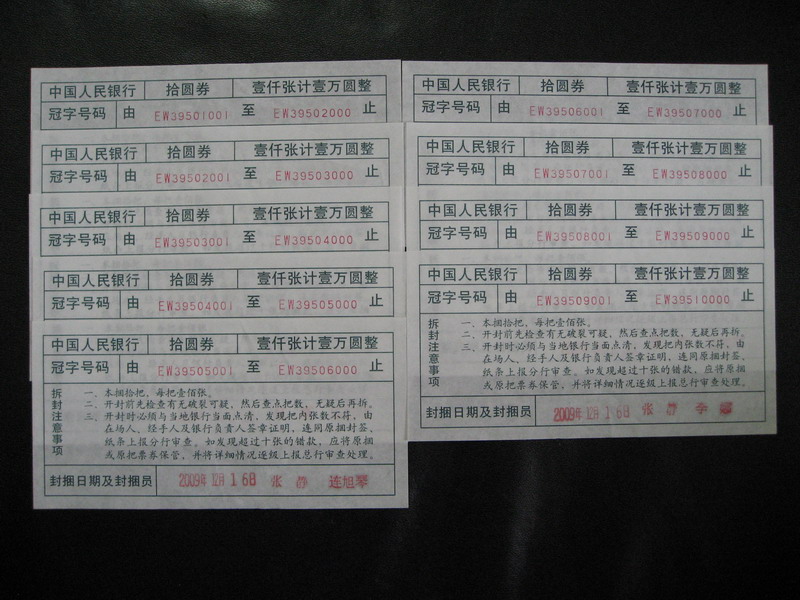 中国人民银行 拾圆券 壹仟张计壹万圆整
冠字号码 由 EW39501001 至 EW39502000 止
中国人民银行 拾圆券 壹仟张计壹万圆整
冠字号码 由 EW39502001 至 EW39503000 止
中国人民银行 拾圆券 壹仟张计壹万圆整
冠字号码 由 EW39503001 至 EW39504000 止
中国人民银行 拾圆券 壹仟张计壹万圆整
冠字号码 由 EW39504001 至 EW39505000 止
中国人民银行 拾圆券 壹仟张计壹万圆整
冠字号码 由 EW39505001 至 EW39506000 止
拆封注意事项
一、本捆拾把，每把壹佰张。
二、开封前先检查有无破裂可疑，然后查点把数，无疑后再拆。
三、开封时必须与当地银行当面点清，发现把内张数不符，由
在场人、经手人及银行负责人签章证明，连同原捆封签、
纸条上报分行审查。如发现超过十张的错款，应将原捆
或原把票券保管，并将详细情况逐级上报总行审查处理。
封捆日期及封捆员 2009年12月16日 张静 连旭琴
中国人民银行 拾圆券 壹仟张计壹万圆整
冠字号码 由 EW39506001 至 EW39507000 止
中国人民银行 拾圆券 壹仟张计壹万圆整
冠字号码 由 EW39507001 至 EW39508000 止
中国人民银行 拾圆券 壹仟张计壹万圆整
冠字号码 由 EW39508001 至 EW39509000 止
中国人民银行 拾圆券 壹仟张计壹万圆整
冠字号码 由 EW39509001 至 EW39510000 止
拆封注意事项
一、本捆拾把，每把壹佰张。
二、开封前先检查有无破裂可疑，然后查点把数，无疑后再拆。
三、开封时必须与当地银行当面点清，发现把内张数不符，由
在场人、经手人及银行负责人签章证明，连同原捆封签、
纸条上报分行审查。如发现超过十张的错款，应将原捆
或原把票券保管，并将详细情况逐级上报总行审查处理。
封捆日期及封捆员 2009年12月16日 张静 李